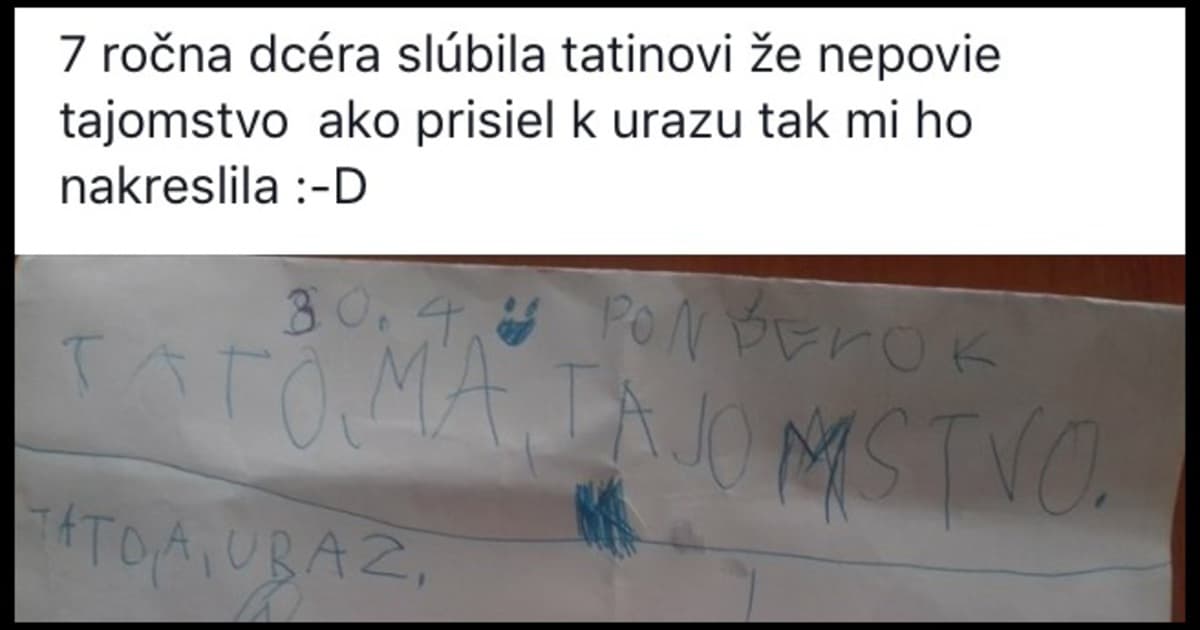 7 ročna dcéra slúbila tatinovi že nepovie
tajomstvo  ako prisiel k urazu tak mi ho
nakreslila :-D
30.4 PONDELOK
TATO,MA,TAJOMSTVO.
TATO,A,URAZ,